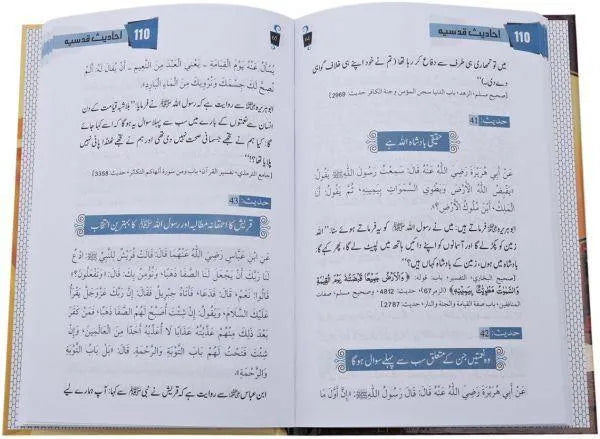 110 احادیث قدسیہ
میں تو تمھاری ہی طرف سے دفاع کر رہا تھا (تم نے خود اپنے ہی خلاف گواہی
دے دی۔)‘‘
(صحیح مسلم، الزھد، باب الدنیا سجن المؤمن وجنة الکافر حدیث: 2969)
حدیث: 41
حقیقی بادشاہ اللہ ہے
عَنْ أَبِي هُرَيْرَةَ رَضِيَ اللّٰهُ عَنْهُ قَالَ سَمِعْتُ رَسُولَ اللّٰهِ ﷺ يَقُولُ
«يَقْبِضُ اللّٰهُ الْأَرْضَ وَيَطْوِي السَّمَوَاتِ بِيَمِينِهِ، ثُمَّ يَقُولُ أَنَا
الْمَلِكُ، أَيْنَ مُلُوكُ الْأَرْضِ؟».
ابو ہریرہ ؓ فرماتے ہیں: میں نے رسول اللہ ﷺ کو یہ فرماتے ہوئے سنا: ’’اللہ
زمین کو پکڑ لے گا اور آسمانوں کو اپنے دائیں ہاتھ میں لپیٹ لے گا، پھر کہے گا:
بادشاہ میں ہوں، زمین کے بادشاہ کہاں ہیں؟‘‘
(صحیح البخاری، التفسیر، باب قولہ: ﴿وَالْأَرْضُ جَمِيعًا قَبْضَتُهُ يَوْمَ الْقِيٰمَةِ
وَالسَّمٰوٰتُ مَطْوِيّٰتٌ بِيَمِينِهِ﴾ (الزمر67)، حدیث: 4812، صحیح مسلم، صفات
المنافقین، باب صفة القیامة والجنة والنار، حدیث: 2787)
حدیث: 42
وہ نعمتیں جن کے متعلق سب سے پہلے سوال ہوگا
عَنْ أَبِي هُرَيْرَةَ رَضِيَ اللّٰهُ عَنْهُ قَالَ: قَالَ رَسُولُ اللّٰهِ ﷺ: «إِنَّ أَوَّلَ مَا
110 احادیث قدسیہ
يُسْأَلُ عَنْهُ يَوْمَ الْقِيَامَةِ - يَعْنِي الْعَبْدَ مِنَ النَّعِيمِ - أَنْ يُقَالَ لَهُ: أَلَمْ
نُصِحَّ لَكَ جِسْمَكَ وَنُرْوِيكَ مِنَ الْمَاءِ الْبَارِدِ؟».
ابو ہریرہ ؓ سے روایت ہے کہ رسول اللہ ﷺ نے فرمایا: ’’بلاشبہ قیامت کے دن
انسان سے نعمتوں کے بارے میں سب سے پہلا سوال یہ ہوگا کہ اسے کہا جائے
گا: کیا ہم نے تجھے جسمانی صحت نہیں دی تھی اور ہم نے تجھے ٹھنڈا پانی نہیں
پلایا تھا؟‘‘
(جامع الترمذی، تفسیر القرآن، باب ومن سورة ألهاکم التکاثر، حدیث: 3358)
حدیث: 43
قریش کا احمقانہ مطالبہ اور رسول اللہ ﷺ کا بہترین انتخاب
عَنِ ابْنِ عَبَّاسٍ رَضِيَ اللّٰهُ عَنْهُمَا قَالَ: قَالَتْ قُرَيْشٌ لِلنَّبِيِّ ﷺ: ادْعُ
لَنَا رَبَّكَ أَنْ يَجْعَلَ لَنَا الصَّفَا ذَهَبًا، وَنُؤْمِنُ بِكَ. قَالَ: «وَتَفْعَلُونَ؟»
قَالُوا: نَعَمْ، قَالَ: فَدَعَا، فَأَتَاهُ جِبْرِيلُ فَقَالَ: إِنَّ رَبَّكَ عَزَّوَجَلَّ يَقْرَأُ
عَلَيْكَ السَّلَامَ وَيَقُولُ: إِنْ شِئْتَ أَصْبَحَ لَهُمُ الصَّفَا ذَهَبًا، فَمَنْ كَفَرَ
بَعْدَ ذَلِكَ مِنْهُمْ عَذَّبْتُهُ عَذَابًا لَا أُعَذِّبُهُ أَحَدًا مِنَ الْعَالَمِينَ، وَإِنْ
شِئْتَ فَتَحْتُ لَهُمْ بَابَ التَّوْبَةِ وَالرَّحْمَةِ، قَالَ: «بَلْ بَابُ التَّوْبَةِ
وَالرَّحْمَةِ».
ابن عباس ؓ سے روایت ہے کہ قریش نے نبی ﷺ سے کہا: آپ ہمارے لیے